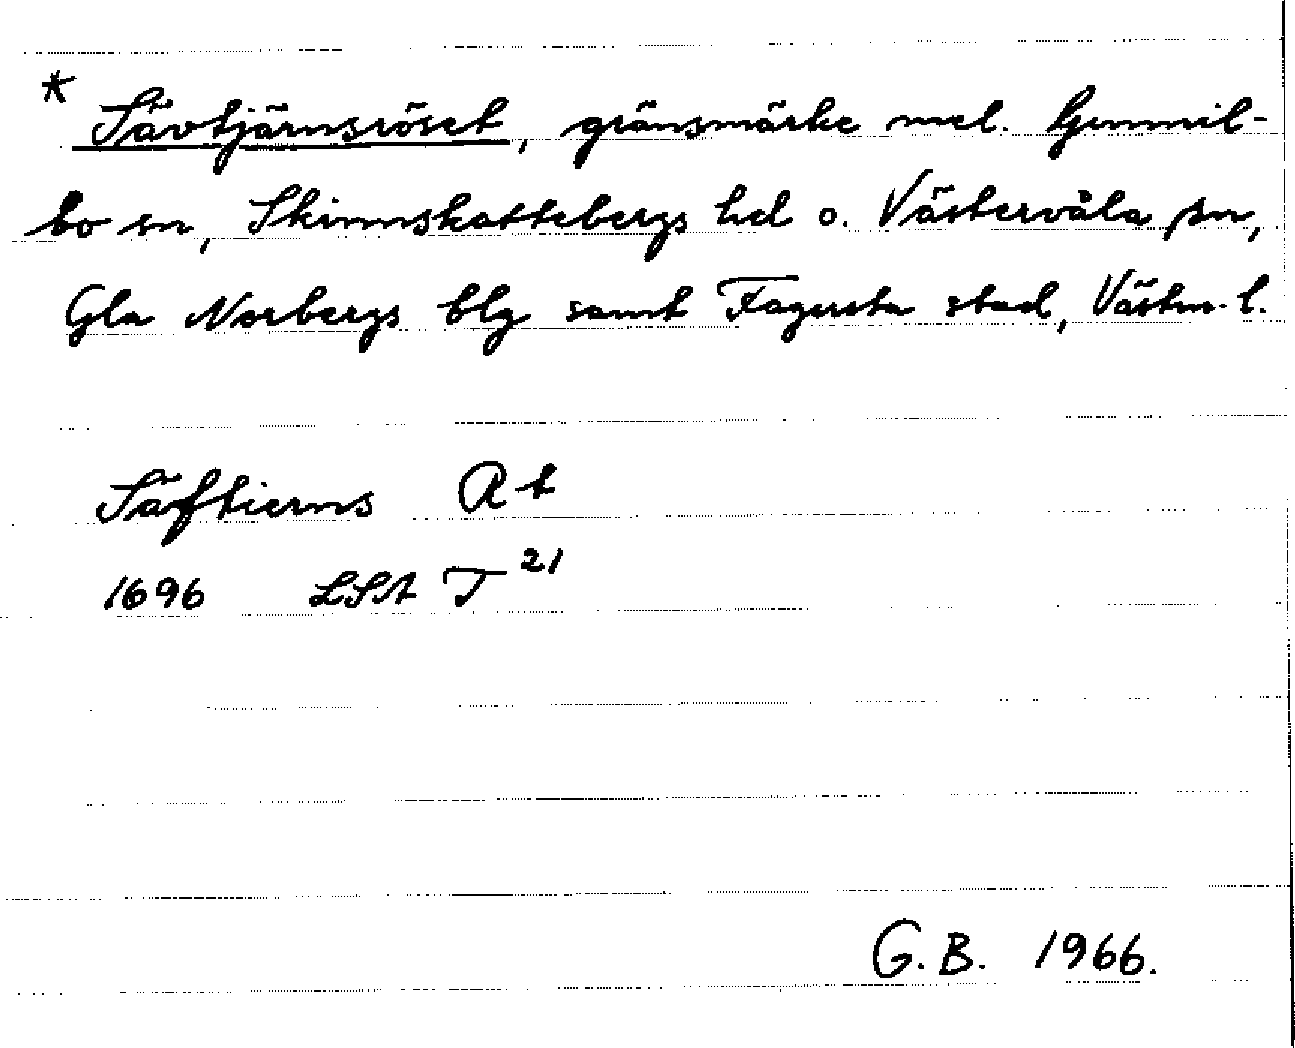 * Sävtjärnsröset, gränsmärke mel. Gunnil-
bo sn, Skinnskattebergs hd o. Västervåla sn,
Gla Norbergs blg samt Fagersta stad, Västm. l.
Säftierns Rt
1696 LSA T 21
G.B. 1966.